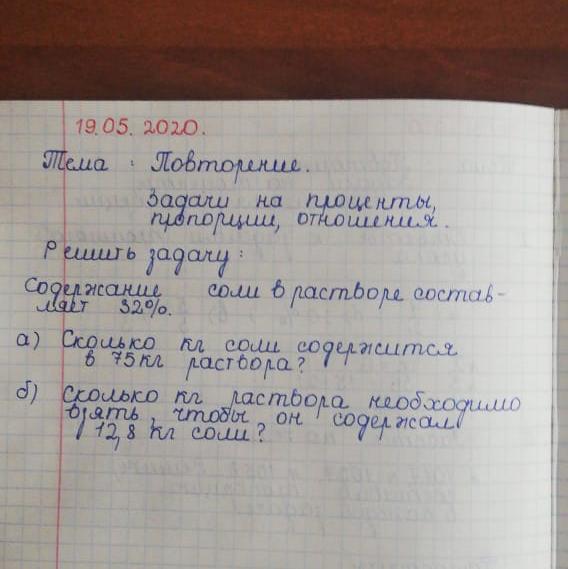 19.05. 2020.
Тема : Повторение.
Задачи на проценты,
пропорции, отношения.
Решить задачу:
Содержание соли в растворе состав-
ляет 32%.
а) Сколько кг соли содержится
в 75 кг раствора?
б) Сколько кг раствора необходимо
взять, чтобы он содержал
12,8 кг соли?